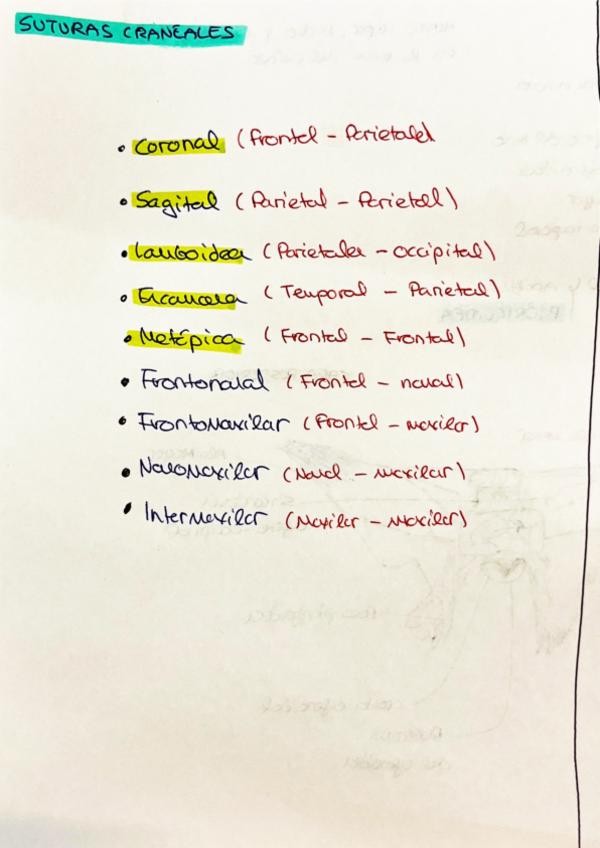 SUTURAS CRANEALES
• Coronal (Frontal - Parietales)
• Sagital (Parietal - Parietal)
• Lamboidea (Parietales - occipital)
• Escamosa (Temporal - Parietal)
• Metópica (Frontal - Frontal)
• Frontonasal (Frontal - nasal)
• FrontoMaxilar (Frontal - maxilar)
• NasoMaxilar (Nasal - maxilar)
• InterMaxilar (Maxilar - maxilar)